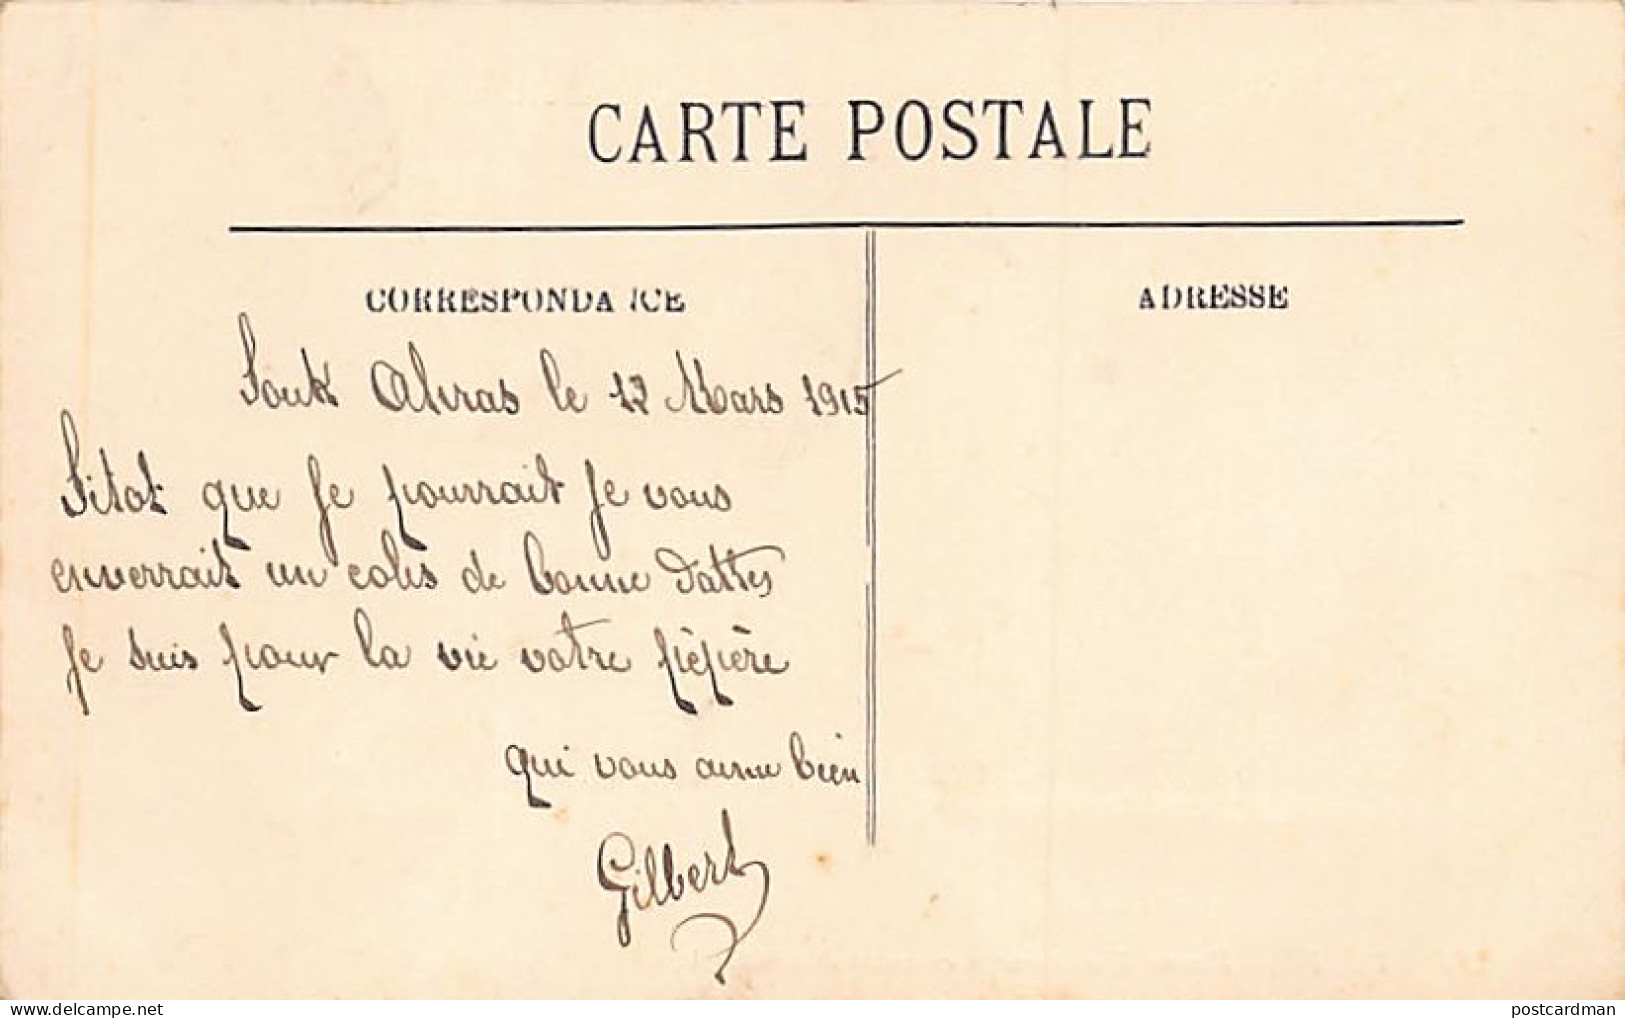 CARTE POSTALE
CORRESPONDANCE
ADRESSE
Souk Ahras le 12 Mars 1915
Sitot que je pourrait je vous
enverrait un colis de bonne dattes
je suis pour la vie votre pépère
qui vous aime bien
Gilbert
postcardman